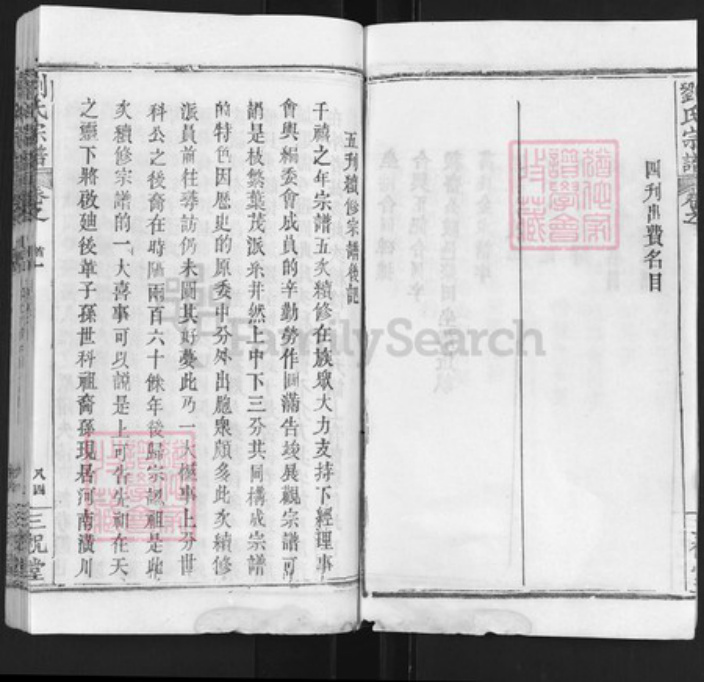 劉氏宗譜
四刋出費名目
五刋續修宗譜後記
千禧之年宗譜五次續修在族眾大力支持下經理事
會與編委會成員的辛勤勞作圓滿告竣展觀宗譜可
謂是枝繁葉茂派系井然上中下三分共同構成宗譜
的特色因歷史的原委中分外出胞眾頗多此次續修
派員前往尋訪仍未圓其好夢此乃一大憾事上分世
科公之後裔在時隔兩百六十餘年後歸宗認祖是此
次續修宗譜的一大喜事可以說是上可告先祖在天
之靈下將啟廸後輩子孫世科祖裔孫現居河南潢川
劉氏宗譜
卷之
首一
又四
三祝堂
FamilySearch